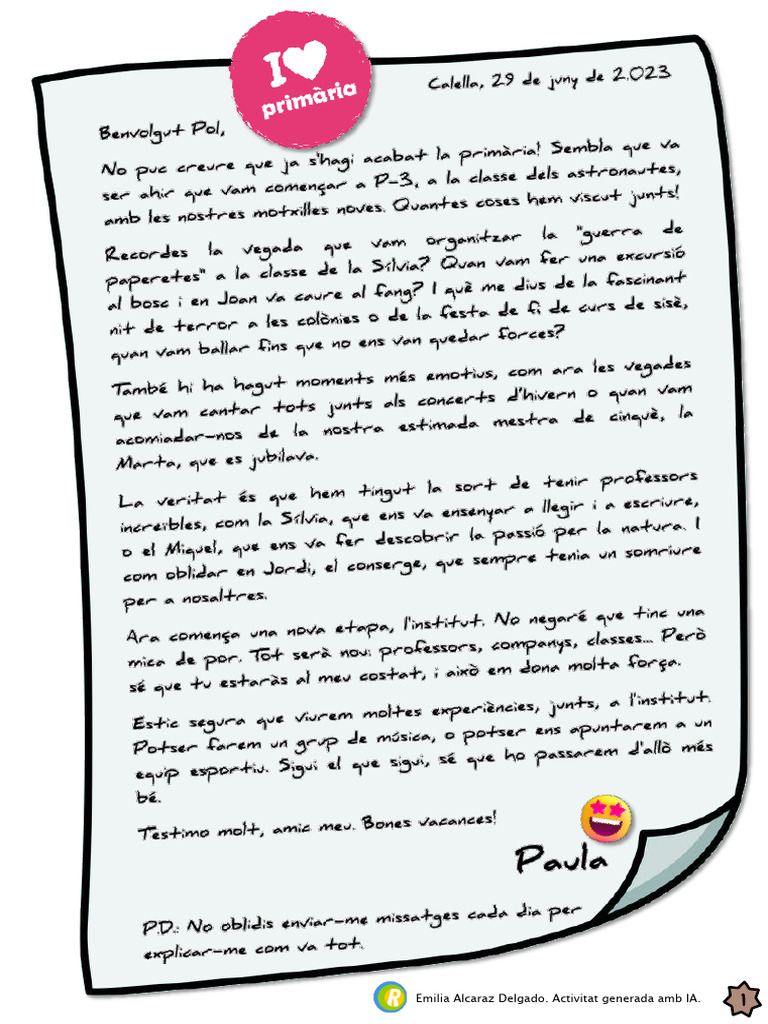 I
primària
Calella, 29 de juny de 2.023
Benvolgut Pol,
No puc creure que ja s'hagi acabat la primària! Sembla que va
ser ahir que vam començar a P-3, a la classe dels astronautes,
amb les nostres motxilles noves. Quantes coses hem viscut junts!
Recordes la vegada que vam organitzar la "guerra de
paperetes" a la classe de la Sílvia? Quan vam fer una excursió
al bosc i en Joan va caure al fang? I què me dius de la fascinant
nit de terror a les colònies o de la festa de fi de curs de sisè,
quan vam ballar fins que no ens van quedar forces?
També hi ha hagut moments més emotius, com ara les vegades
que vam cantar tots junts als concerts d'hivern o quan vam
acomiadar-nos de la nostra estimada mestra de cinquè, la
Marta, que es jubilava.
La veritat és que hem tingut la sort de tenir professors
increïbles, com la Sílvia, que ens va ensenyar a llegir i a escriure,
o el Miquel, que ens va fer descobrir la passió per la natura. I
com oblidar en Jordi, el conserge, que sempre tenia un somriure
per a nosaltres.
Ara comença una nova etapa, l'institut. No negaré que tinc una
mica de por. Tot serà nou: professors, companys, classes... Però
sé que tu estaràs al meu costat, i això em dona molta força.
Estic segura que viurem moltes experiències, junts, a l'institut.
Potser farem un grup de música, o potser ens apuntarem a un
equip esportiu. Sigui el que sigui, sé que ho passarem d'allò més
bé.
T'estimo molt, amic meu. Bones vacances!
Paula
P.D.: No oblidis enviar-me missatges cada dia per
explicar-me com va tot.
R
Emilia Alcaraz Delgado. Activitat generada amb IA.
1